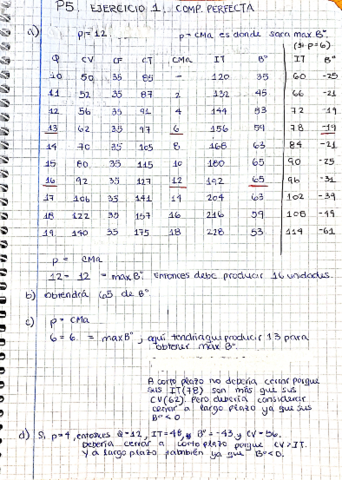 P5. EJERCICIO 1. COMP. PERFECTA
a) p=12 p=CMa es donde sera max Bº.
(si p=6)
Q CV CF CT CMa IT Bº IT Bº
10 50 35 85 - 120 35 60 -25
11 52 35 87 2 132 45 66 -21
12 56 35 91 4 144 53 72 -19
13 62 35 97 6 156 59 78 -19
14 70 35 105 8 168 63 84 -21
15 80 35 115 10 180 65 90 -25
16 92 35 127 12 192 65 96 -31
17 106 35 141 14 204 63 102 -39
18 122 35 157 16 216 59 108 -49
19 140 35 175 18 228 53 114 -61
p = CMa
12 = 12 = max Bº. Entonces debe producir 16 unidades.
b) obtendrá 65 de Bº
c) p = CMa
6 = 6 = max Bº, aquí tendría que producir 13 para
obtener max Bº.
A corto plazo no debería cerrar porque
sus IT(78) son más que sus
CV(62). Pero debería considerar
cerrar a largo plazo ya que sus
Bº<0
d) Si p=4, entonces Q=12, IT=48, Bº=-43 y CV=56.
Debería cerrar a corto plazo porque CV>IT.
Y a largo plazo también ya que Bº<0.